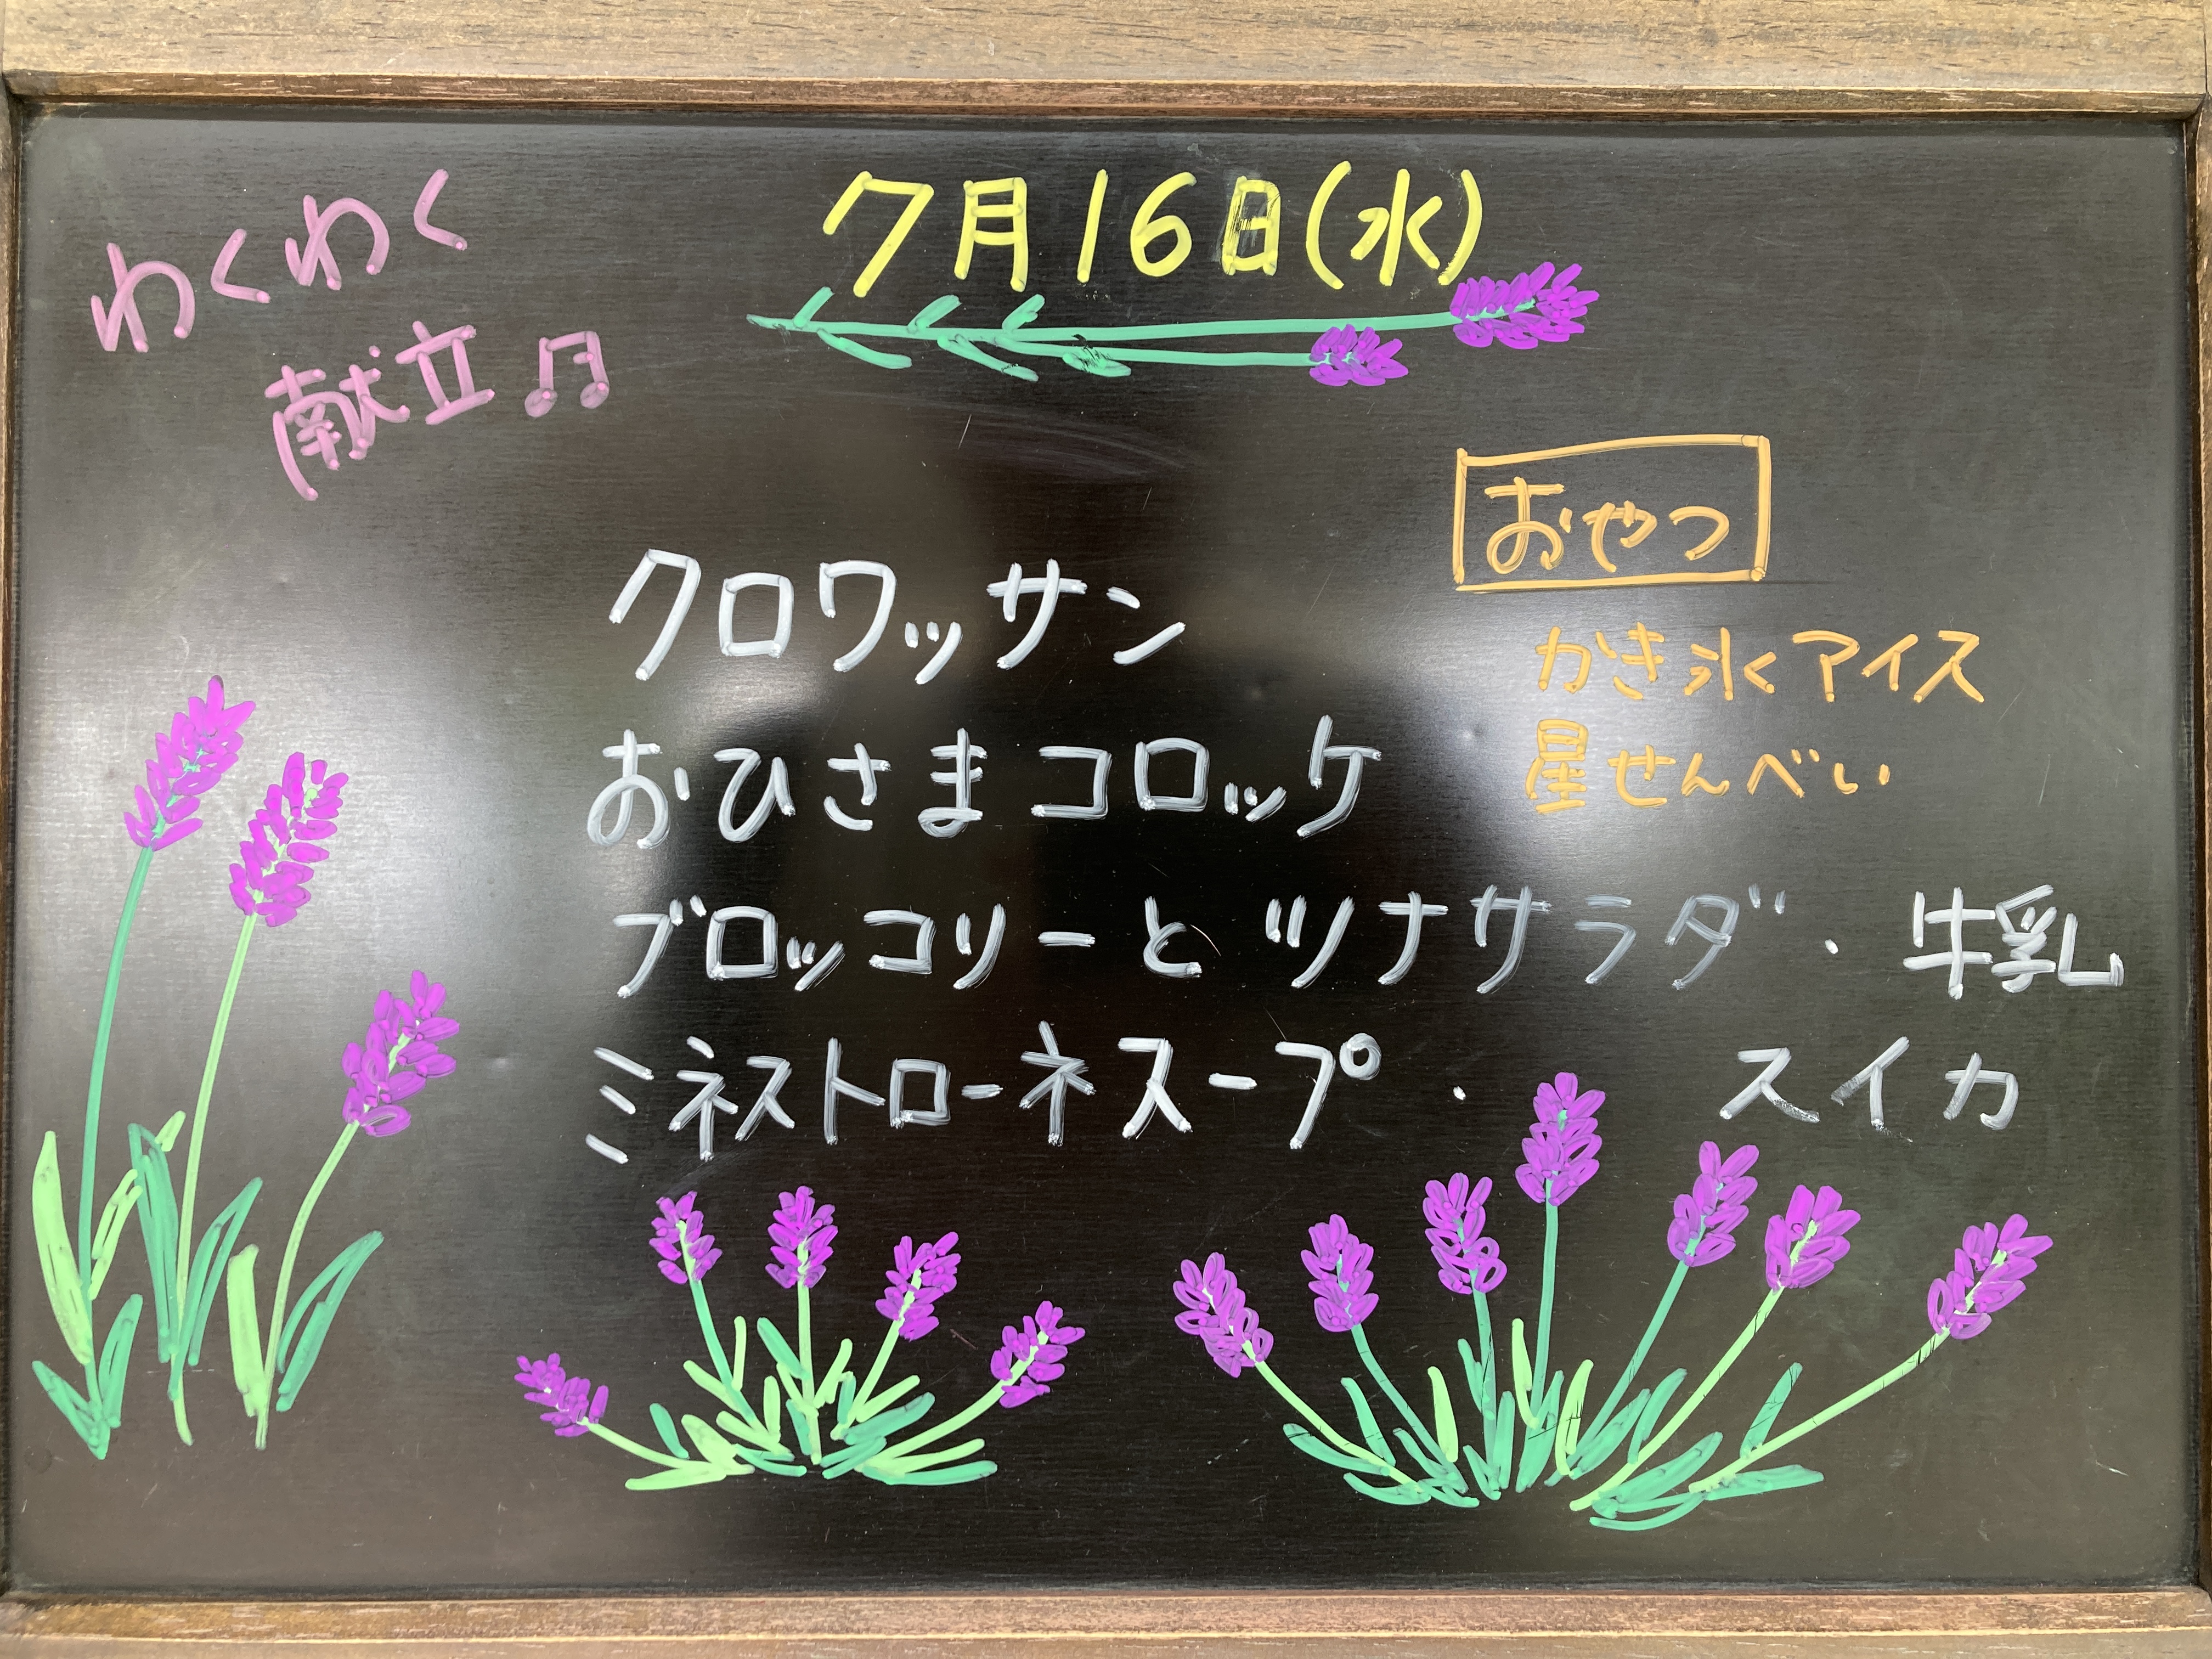 わくわく
献立♫
7月16日(水)
おやつ
かき氷アイス
星せんべい
クロワッサン
おひさまコロッケ
ブロッコリーとツナサラダ・牛乳
ミネストローネスープ・スイカ